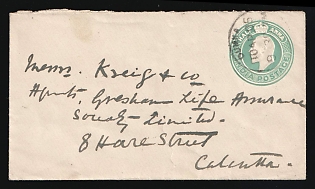 HALF ANNA
INDIA POSTAGE
Messrs. Kreig & co
Agents, Gresham Life Assurance
Society Limited.
8 Hare Street
Calcutta.